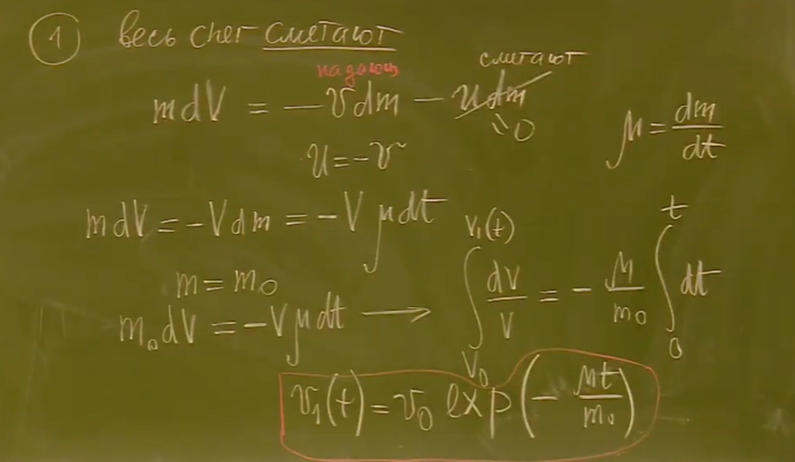 ① весь снег сметают
падающ
сметают
mdV = −vdm − udm
=0
μ = dm/dt
u = −v
mdV = −Vdm = −Vμdt
m = m₀
m₀dV = −Vμdt ⟶ ∫_{V₀}^{V₁(t)} dv/v = − μ/m₀ ∫₀ᵗ dt
v₁(t) = v₀ exp(− μt/m₀)